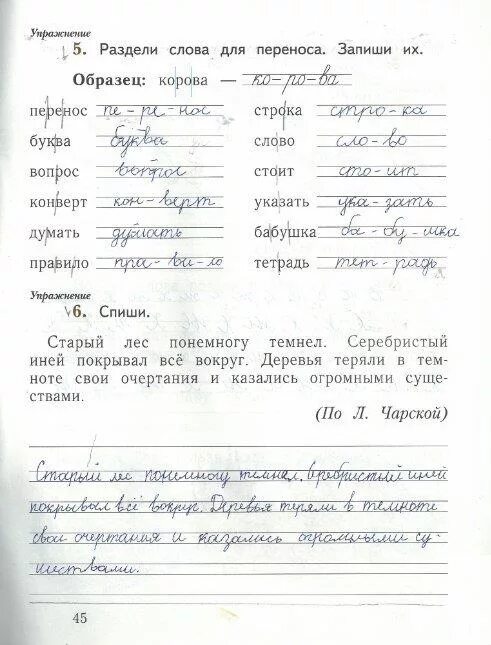 Упражнение
5. Раздели слова для переноса. Запиши их.
Образец: корова — ко-ро-ва
перенос пе-ре-нос строка стро-ка
буква буква слово сло-во
вопрос вопрос стоит сто-ит
конверт кон-верт указать ука-зать
думать думать бабушка ба-бу-шка
правило пра-ви-ло тетрадь тет-радь
Упражнение
6. Спиши.
Старый лес понемногу темнел. Серебристый
иней покрывал всё вокруг. Деревья теряли в тем-
ноте свои очертания и казались огромными суще-
ствами.
(По Л. Чарской)
Старый лес понемногу темнел. иней
покрывал всё вокруг. Деревья теряли в темноте
свои очертания и казались огромными су-
ществами.
45